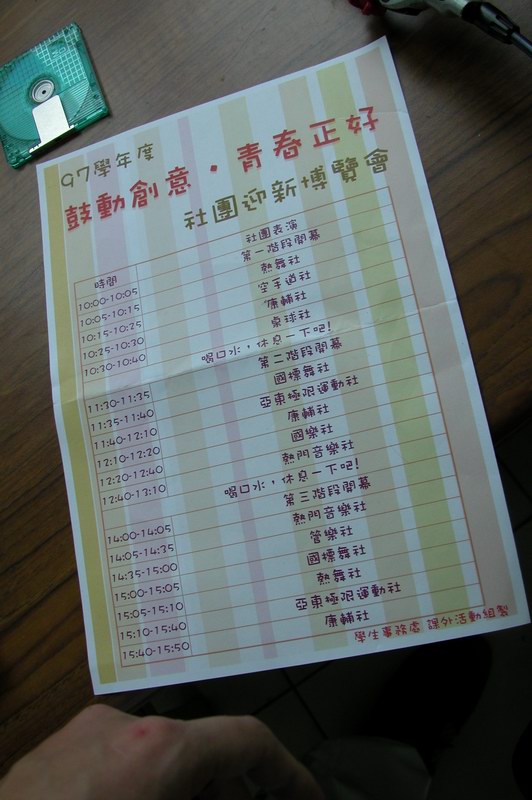 97學年度
鼓動創意・青春正好
社團迎新博覽會
時間 社團表演
10:00-10:05 第一階段開幕
10:05-10:15 熱舞社
10:15-10:25 空手道社
10:25-10:30 康輔社
10:30-10:40 桌球社
喝口水，休息一下吧!
11:30-11:35 第二階段開幕
11:35-11:40 國標舞社
11:40-12:10 亞東極限運動社
12:10-12:20 康輔社
12:20-12:40 國樂社
12:40-13:10 熱門音樂社
喝口水，休息一下吧!
14:00-14:05 第三階段開幕
14:05-14:35 熱門音樂社
14:35-15:00 管樂社
15:00-15:05 國標舞社
15:05-15:10 熱舞社
15:10-15:40 亞東極限運動社
15:40-15:50 康輔社
學生事務處 課外活動組製